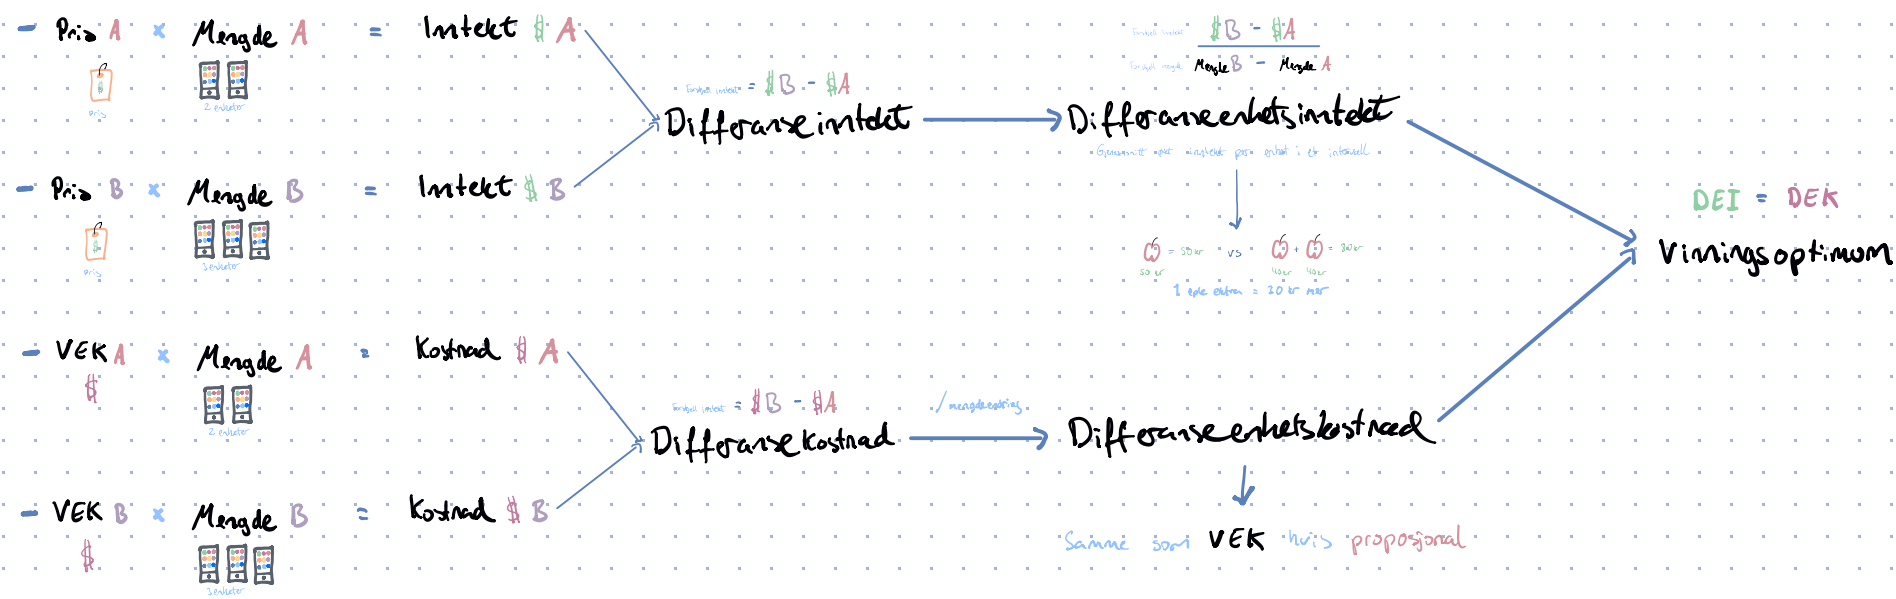 - Pris A x Mengde A = Inntekt $ A
pris
2 enheter
- Pris B x Mengde B = Inntekt $ B
pris
3 enheter
Forskjell inntekt = $B - $A
Differanseinntekt
Forskjell inntekt $B - $A
Forskjell mengde Mengde B - Mengde A
Differanseenhetsinntekt
Gjennomsnitt økt inntekt per enhet i et intervall
= 50 kr vs + = 80 kr
50 kr 40 kr 40 kr
1 eple ekstra = 20 kr mer
- VEK A x Mengde A = Kostnad $ A
$
2 enheter
- VEK B x Mengde B = Kostnad $ B
$
3 enheter
Forskjell inntekt = $B - $A
Differansekostnad
/ mengdeendring
Differanseenhetskostnad
Samme som VEK hvis proposjonal
DEI = DEK
Vinningsoptimum